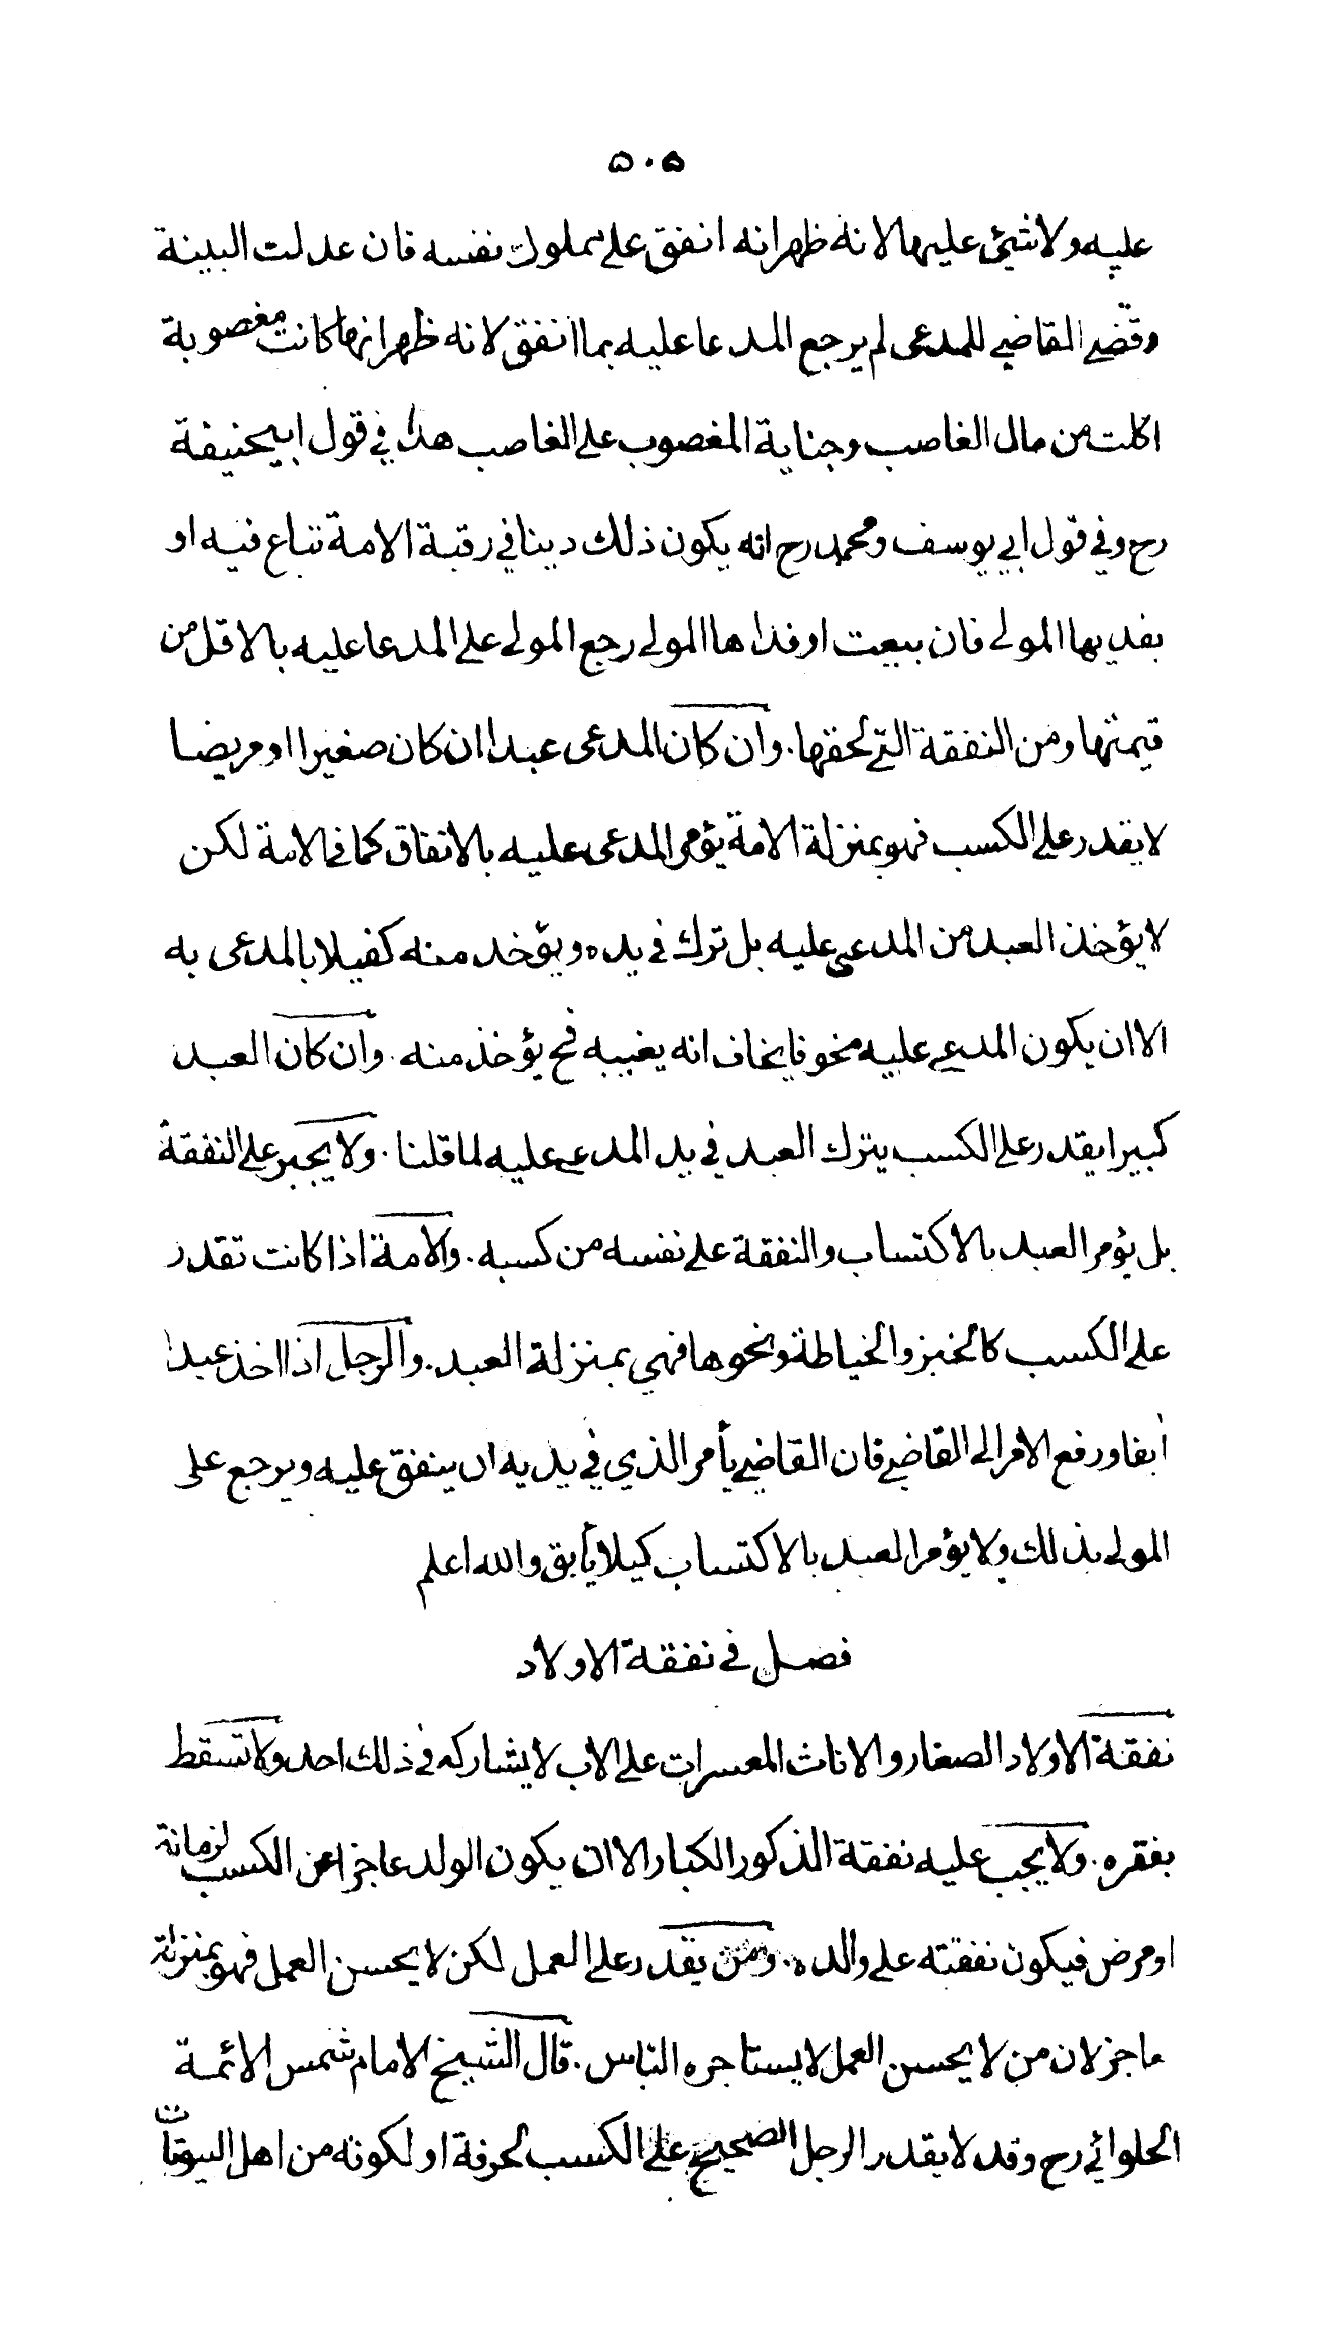 ۵۰۵
عليه ولا شيئ عليها لانه ظهر انه انفق على مملوك نفسه فان عدلت البينة
وقضى القاضي للمدعى لم يرجع المدعا عليه بما انفق لانه ظهر انها كانت مغصوبة
اكلت من مال الغاصب وجناية المغصوب على الغاصب هذا في قول ابيحنيفة
رح وفي قول ابي يوسف ومحمد رح انه يكون ذلك دينا في رقبة الامة تباع فيه او
يفديها المولى فان بيعت او فداها المولى رجع المولى على المدعا عليه بالاقل من
قيمتها ومن النفقة التي لحقها . وان كان المدعى عبدا ان كان صغيرا او مريضا
لا يقدر على الكسب فهو بمنزلة الامة يؤمر المدعى عليه بالانفاق كما في الامة لكن
لا يؤخذ العبد من المدعى عليه بل ترك في يده ويؤخذ منه كفيلا بالمدعى به
الا ان يكون المدعى عليه مخوفا يخاف انه يغيبه فح يؤخذ منه . وان كان العبد
كبيرا يقدر على الكسب يترك العبد في يد المدعى عليه لما قلنا . ولا يجبر على النفقة
بل يؤمر العبد بالاكتساب والنفقة على نفسه من كسبه . والامة اذا كانت تقدر
على الكسب كالخبز والخياطة ونحوها فهي بمنزلة العبد . والرجل اذا اخذ عبدا
ابقا ورفع الامر الى القاضي فان القاضي يأمر الذي في يديه ان ينفق عليه ويرجع على
المولى بذلك ولا يؤمر العبد بالاكتساب كيلا يأبق والله اعلم
فصل في نفقة الاولاد
نفقة الاولاد الصغار والاناث المعسرات على الاب لا يشاركه في ذلك احد ولا تسقط
بفقره . ولا يجب عليه نفقة الذكور الكبار الا ان يكون الولد عاجزا عن الكسب لزمانة
او مرض فيكون نفقته على والده . ومن يقدر على العمل لكن لا يحسن العمل فهو بمنزلة
عاجز لان من لا يحسن العمل لا يستاجره الناس . قال الشيخ الامام شمس الائمة
الحلوائي رح وقد لا يقدر الرجل الصحيح على الكسب لحرفة او لكونه من اهل البيوتات